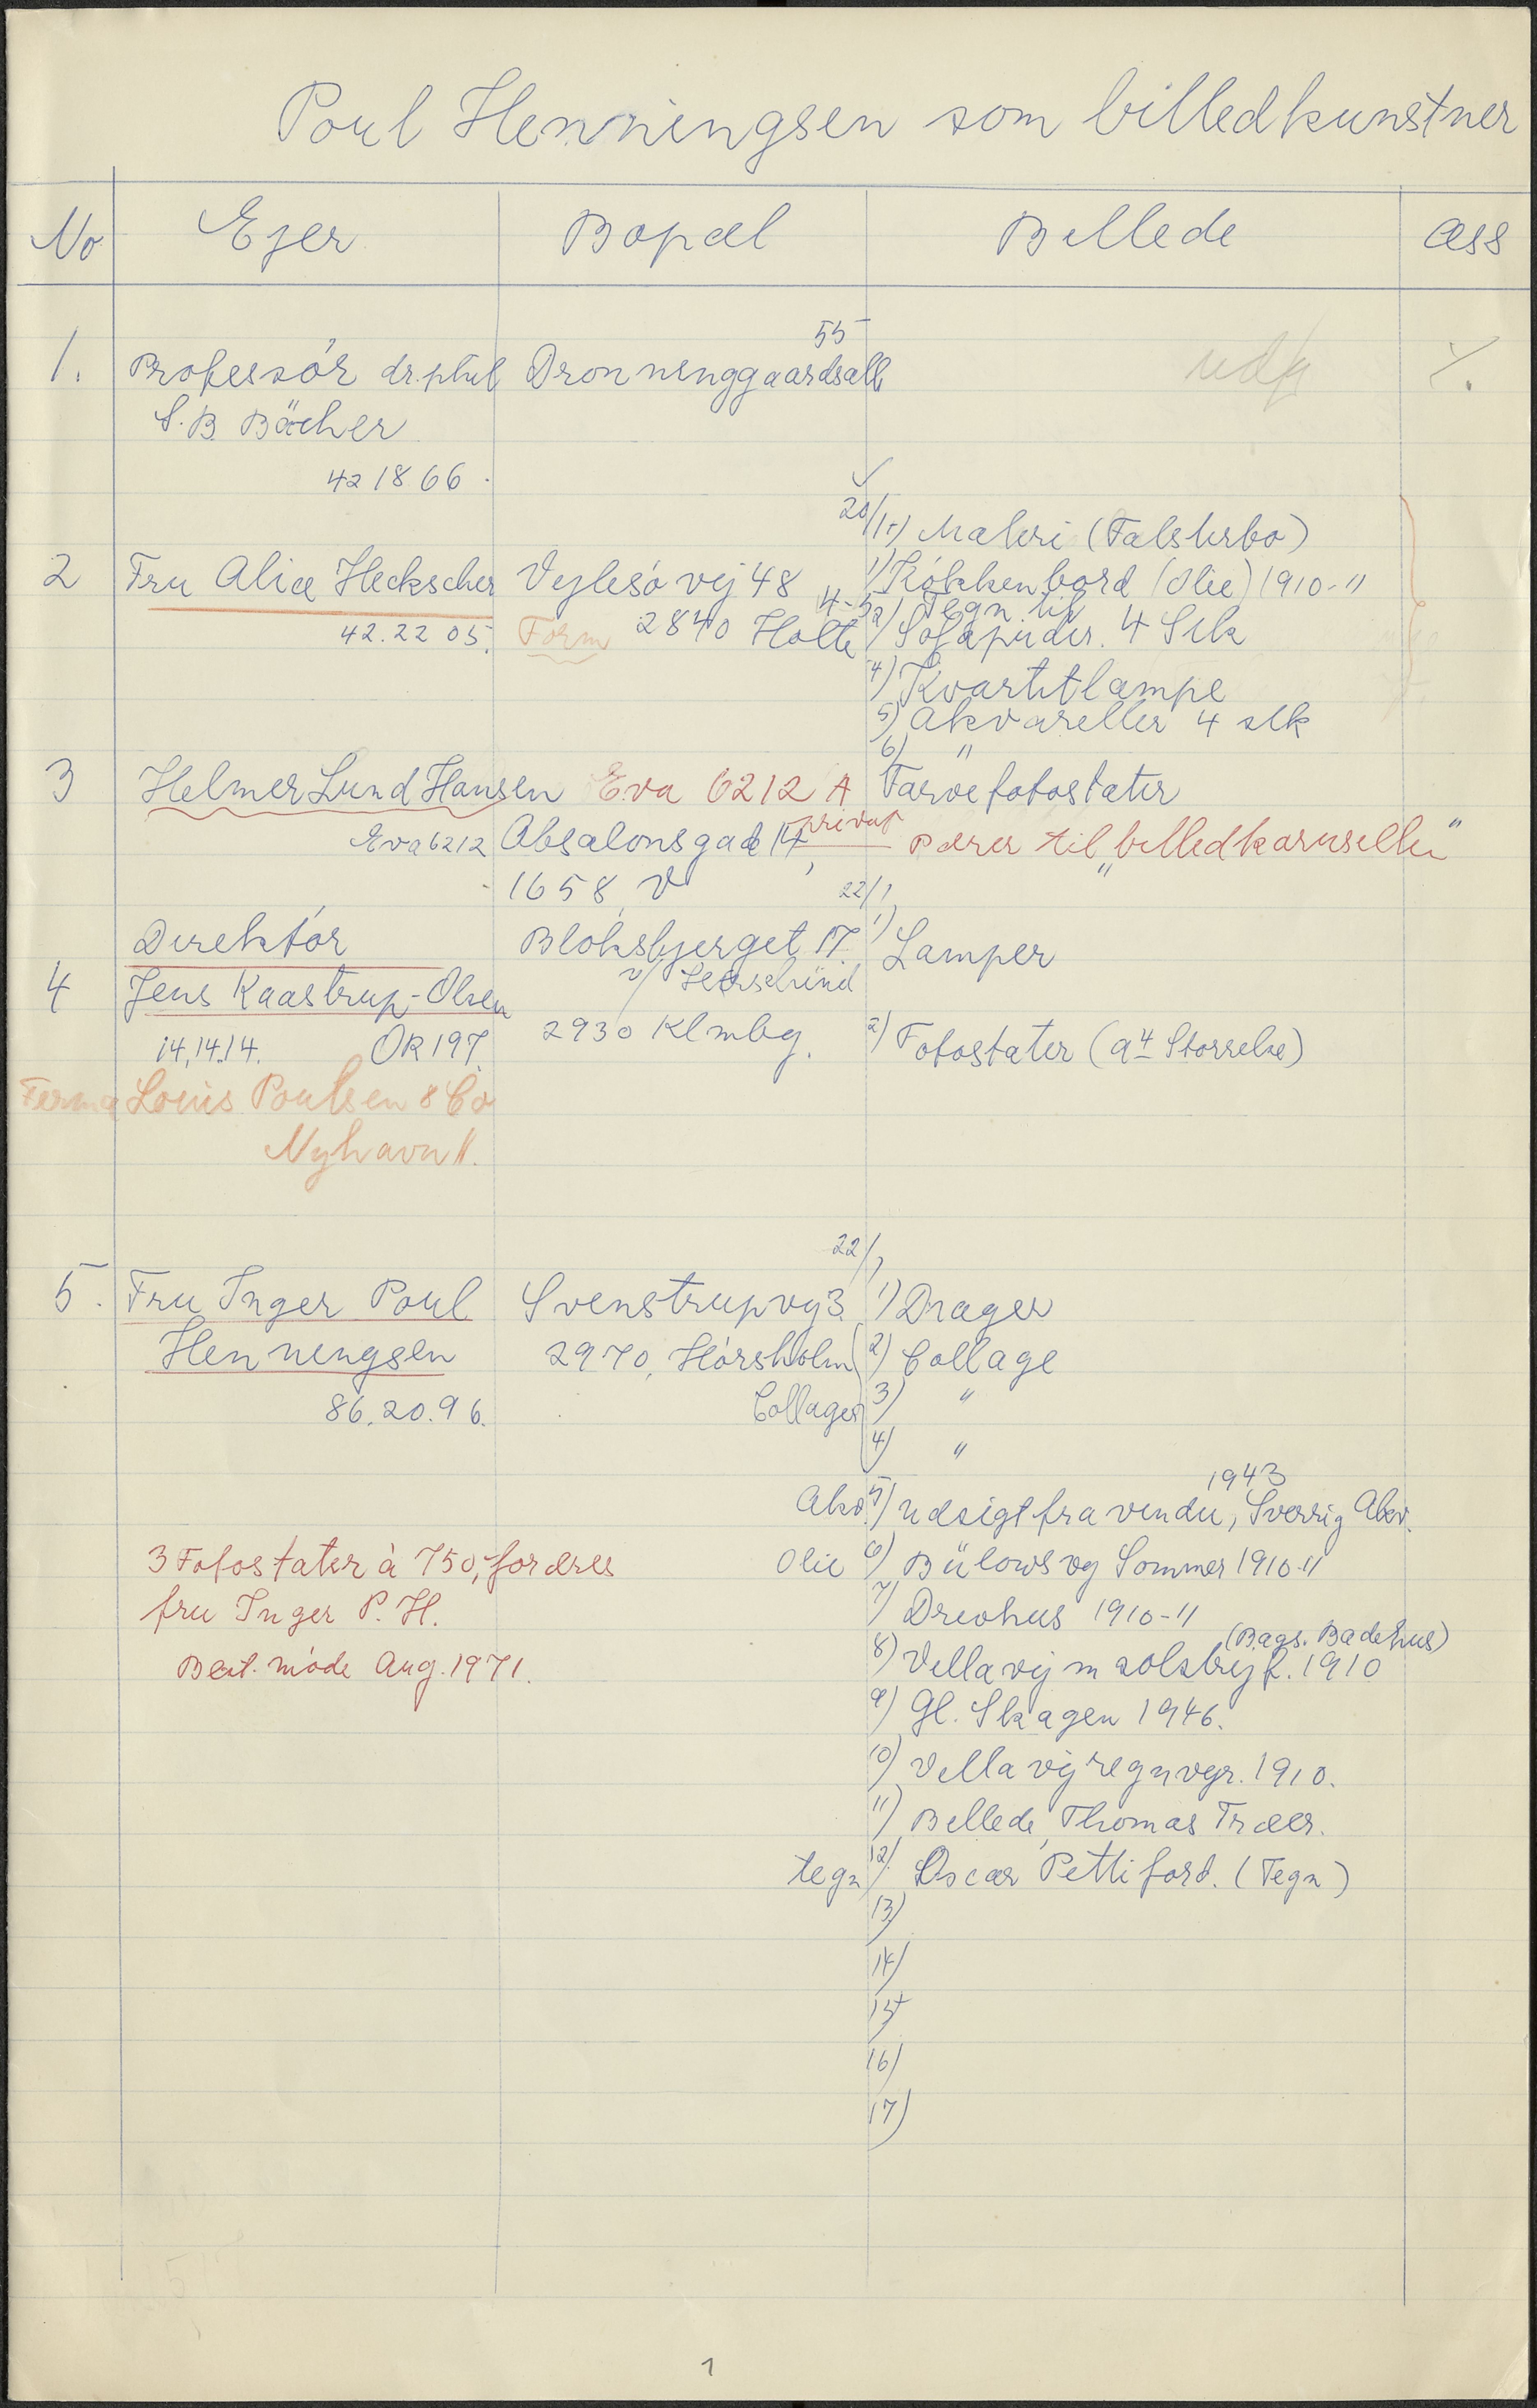 Poul Henningsen som billedkunstner
No Ejer Bopæl Billede ass
55
1. Professór dr.phil Dronninggaardsall udg ٪.
S.B Bächer
421866.
20/1 1) Maleri (Falsterbo)
2 Fru Alice Heckscher Vejlesó vej 48 1) Kókkenbord (Olie) 1910-11
4-5 2) Tegn. til
42.22 05. Form 2840 Holte Sofapuder. 4 Stk
4) Kvartitlampe
5) Akvareller 4 stk
6) "
3 Helmer Lund Hansen Eva 6212 A Farvefotostater
Eva 6212 Absalonsgade 14, privat Pærer til „billedkarusellen"
1658 V
22/1
Direktór Bloksbjerget 17. 1) Lamper
v/
4 Jens Kaastrup-Olsen
14.14.14. OR 197. 2930 Klmbg. 2) Fotostater (a4 Storrelse)
Firma Louis Poulsen & Co
Nyhavn 11.
22/1
5. Fru Inger Poul Svenstrupvej 3 1) Drager
Henningsen 2970, Hórsholm 2) Collage
86.20.96. Collager 3) "
4) "
1943
Akv. 5) Udsigt fra vindu, Sverrig Akv.
3 Fotostater à 750,- fordres Olie 6) Bülowsvej Sommer 1910-11
fru Inger P.H. 7) Drivhus 1910-11
(Bags. Badehus)
Best. móde Aug. 1971. 8) Villavej m solstrejf. 1910
9) Gl. Skagen 1946.
10) Villavej regnvejr. 1910.
11) Billede, Thomas Træer.
tegn 12) Oscar Pettiford. (Tegn)
13)
14)
15)
16)
17)
1